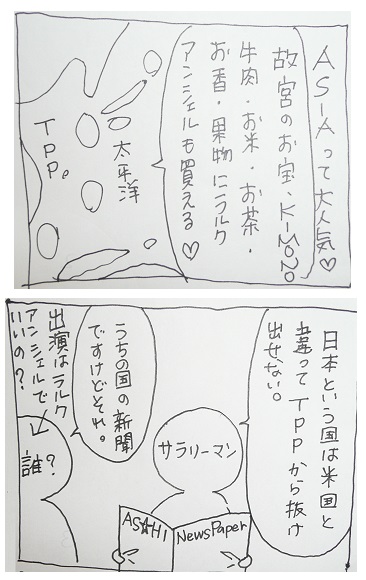 ASIAって大人気♡
故宮のお宝、KIMONO
牛肉・お米・お茶・
お香・果物にラルク
アンシェルも買える♡
太平洋
TPP。
日本という国は米国と
違ってTPPから抜け
出せない。
サラリーマン
ASAHI NewsPaper
うちの国の新聞
ですけどそれ。
出演はラルク
アンシェルで
いいの?
誰?